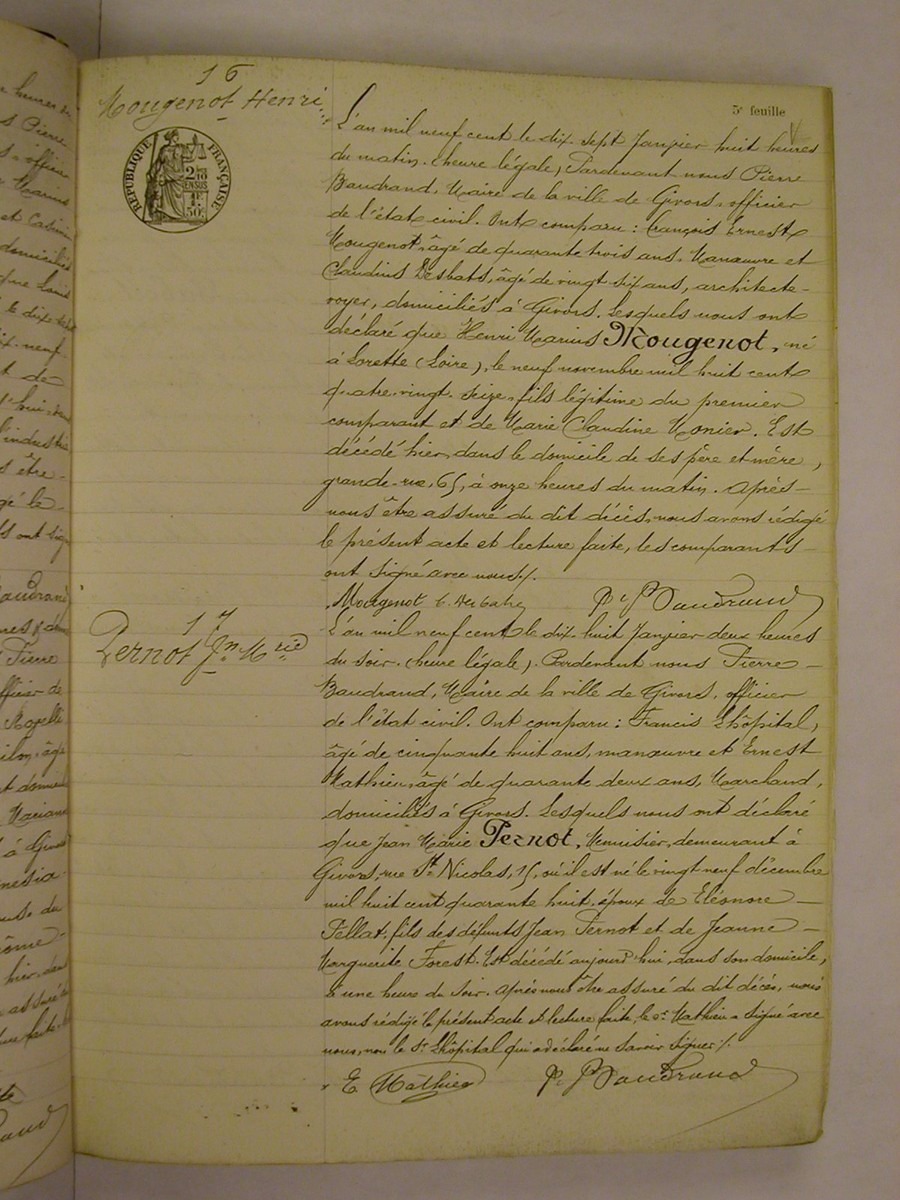 5e feuille
16
Mougenot Henri
RÉPUBLIQUE FRANÇAISE
L'an mil neuf cent le dix sept Janvier huit heures
du matin. (heure légale), Pardevant nous Pierre
Baudrand, Maire de la ville de Givors, officier
de l'état civil. Ont comparu : François Ernest
Mougenot, âgé de quarante trois ans, Manœuvre et
Claudius Desbats, âgé de vingt six ans, architecte-
voyer, domiciliés à Givors. Lesquels nous ont
déclaré que Henri Marius Mougenot, né
à Lorette (Loire), le neuf novembre mil huit cent
quatre-vingt-seize, fils légitime du premier
comparant et de Marie Claudine Monier. Est
décédé hier, dans le domicile de ses père et mère,
grande-rue, 65, à onze heures du matin. Après
nous être assuré du dit décès, nous avons rédigé
le présent acte et lecture faite, les comparants
ont signé avec nous./.
Mougenot C. Desbats P. Baudrand
17
Pernot Jn Mrie
L'an mil neuf cent le dix huit Janvier deux heures
du soir. (heure légale). Pardevant nous Pierre
Baudrand, Maire de la ville de Givors, officier
de l'état civil. Ont comparu : Francis Lhôpital,
âgé de cinquante huit ans, manœuvre et Ernest
Mathieu, âgé de quarante deux ans, Marchand,
domiciliés à Givors. Lesquels nous ont déclaré
que Jean Marie Pernot, Menuisier, demeurant à
Givors, rue St Nicolas, 15, où il est né le vingt neuf décembre
mil huit cent quarante huit. époux de Eléonore
Pellat, fils des défunts Jean Pernot et de Jeanne
Marguerite Forest. Est décédé aujourd'hui, dans son domicile,
à une heure du soir. Après nous être assuré du dit décès, nous
avons rédigé le présent acte et lecture faite, le sr. Mathieu a signé avec
nous, non le Sr Lhôpital qui a déclaré ne savoir signer./.
E Mathieu P. Baudrand